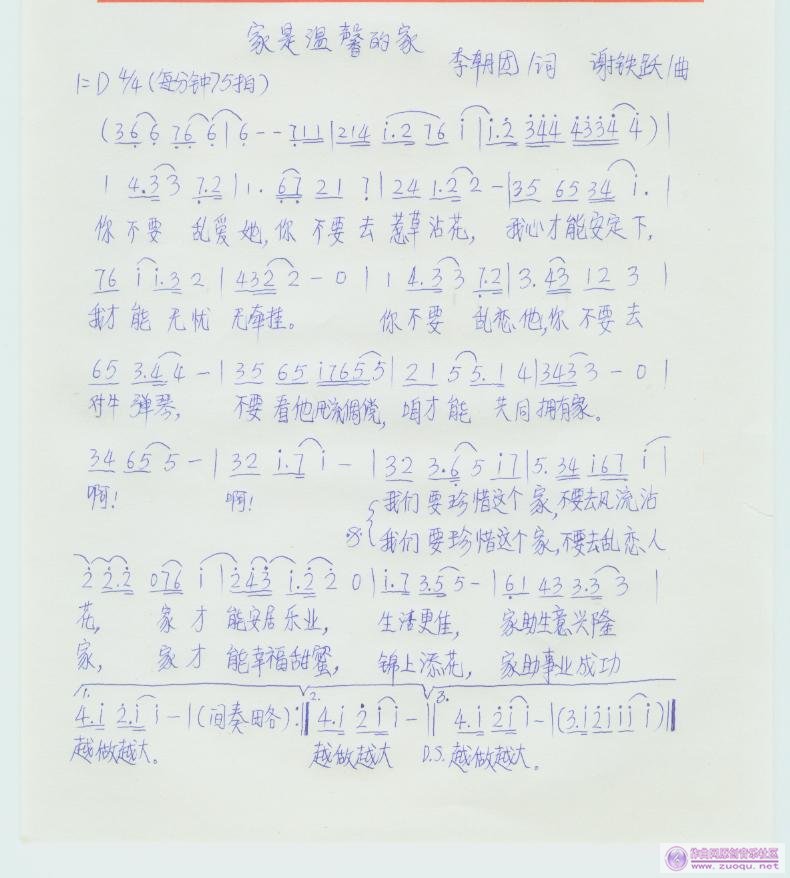 家是温馨的家
李朝团/词 谢铁跃/曲
1=D 4/4 (每分钟75拍)
(366 766|6--711|214 i.2 76 i|i.2 344 4334 4)|
1 4.3 3 7.2|1. 67 21 7|24 1.2 2-|35 65 34 i.|
你不要 乱爱她,你 不要去 惹草沾花, 我心才能安定下,
76 i i.3 2|432 2-0|1 4.3 3 7.2|3. 43 12 3|
我才能 无忧 无牵挂。 你不要 乱恋他,你 不要去
65 3.4 4-|35 65 i765 5|21 5 5.1 4|343 3-0|
对牛弹琴, 不要看他风流倜傥, 咱才能 共同拥有家。
34 65 5-|32 i.7 i-|32 3.6 5 i7|5. 34 i67 i|
啊! 啊! 我们要珍惜这个家,不要去风流沾
我们要珍惜这个家,不要去乱恋人
2 2.2 076 i|243 i.2 2 0|i.7 3.5 5-|61 43 3.3 3|
花, 家才能安居乐业, 生活更佳, 家助生意兴隆
家, 家才能幸福甜蜜, 锦上添花, 家助事业成功
1. 2. 3.
4.i 2.i i-|(间奏略):‖4.i 2i i-‖4.i 2i i-|(3.i2iii i)‖
越做越大。 越做越大 D.S. 越做越大。
作曲网原创音乐社区
www.zuoqu.net